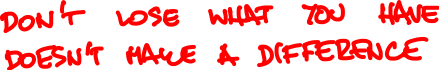 DON'T LOSE WHAT YOU HAVE
DOESN'T MAKE A DIFFERENCE